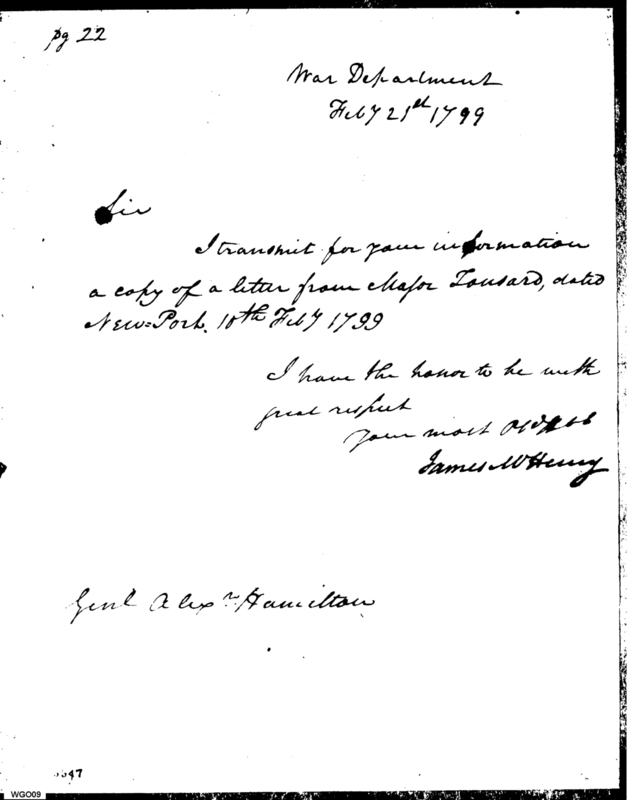 pg 22
War Department
Feby 21st 1799
Sir
I transmit for your information
a copy of a letter from Major Tousard, dated
New-Port. 10th Feby 1799
I have the honor to be with
great respect
your most
James McHenry
Genl Alexr Hamilton
47
WGO09